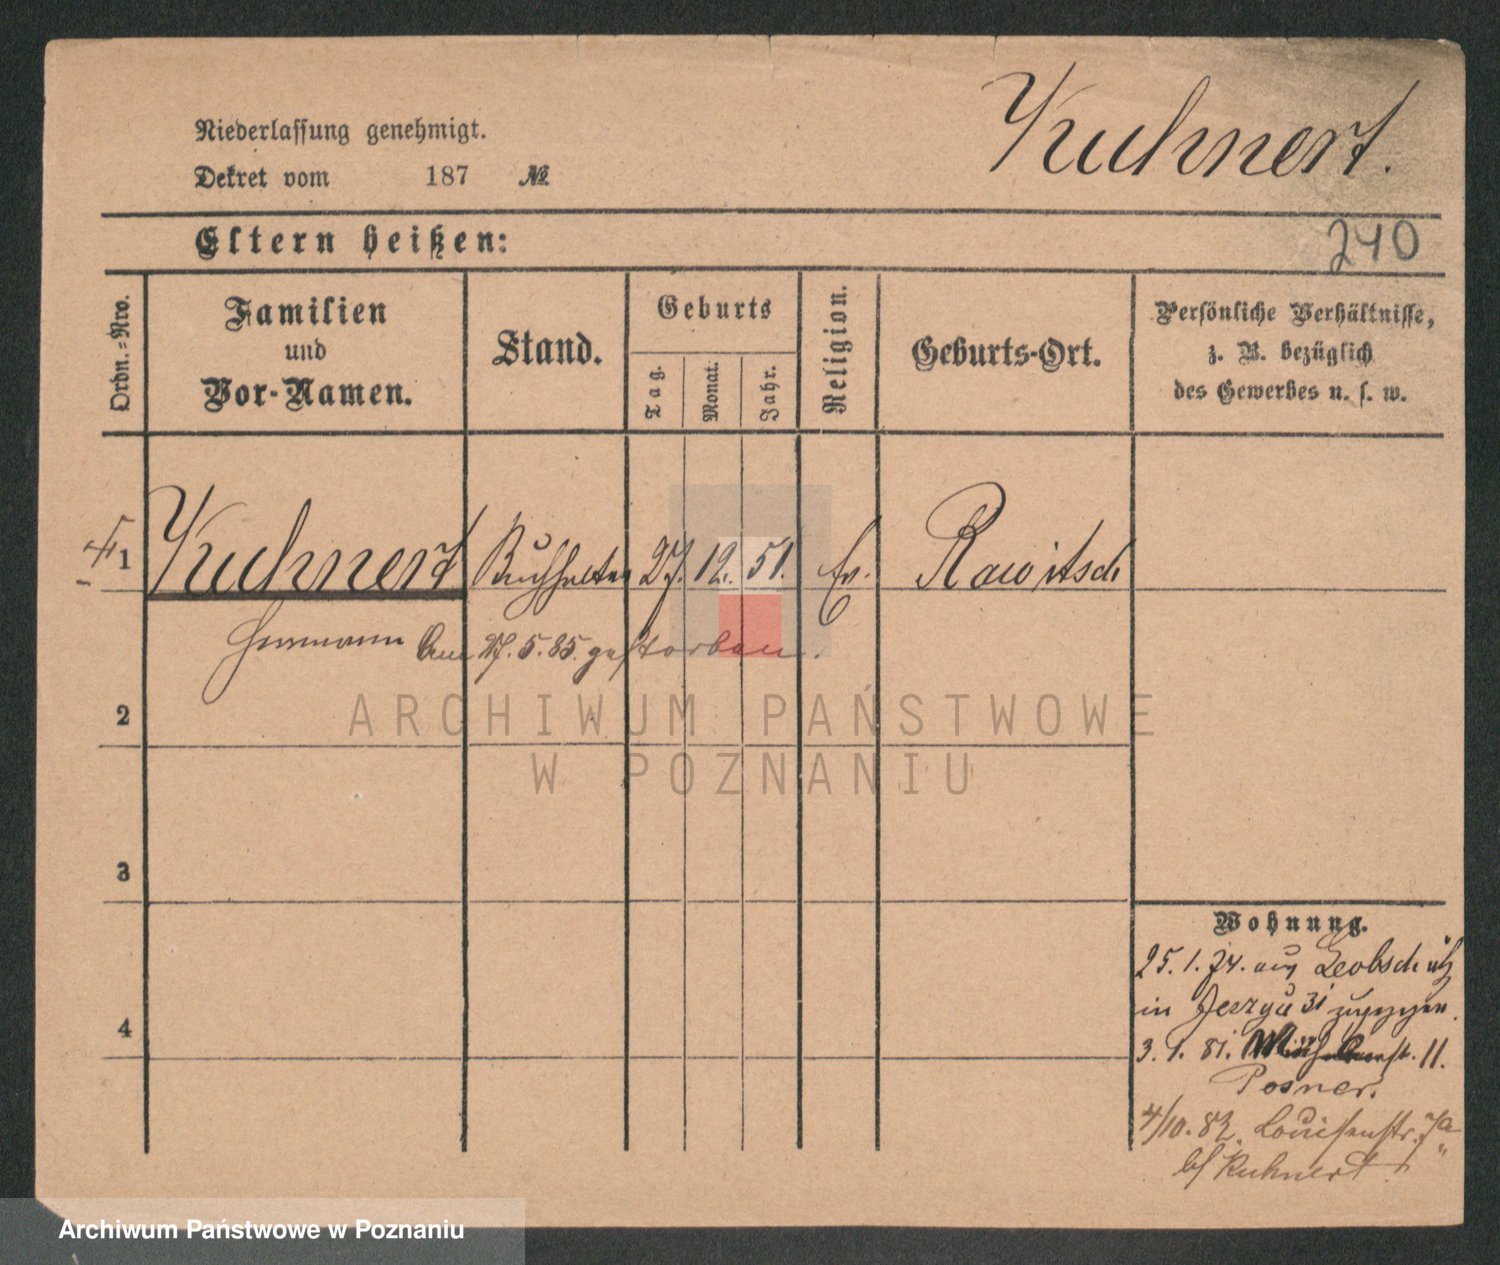 Kuhnert.
Niederlassung genehmigt.
Dekret vom 187 №
Eltern heißen:
240
Ordn.-Nro.
Familien
und
Vor-Namen.
Stand.
Geburts
Tag.
Monat.
Jahr.
Religion.
Geburts-Ort.
Persönliche Verhältnisse,
z. B. bezüglich
des Gewerbes u. s. w.
1 Kuhnert Buchhalter 27. 12. 51. Ev. Rawitsch
Hermann Am 27. 5. 85. gestorben.
2
3
4
Wohnung.
25. 1. 74. aus Leobschütz
in Jerzyce 31 zugezogen.
3. 1. 81. 11.
Posner.
4/10. 82. Louisenstr. 7a
b/ Kuhnert
ARCHIWUM PAŃSTWOWE
W POZNANIU
Archiwum Państwowe w Poznaniu